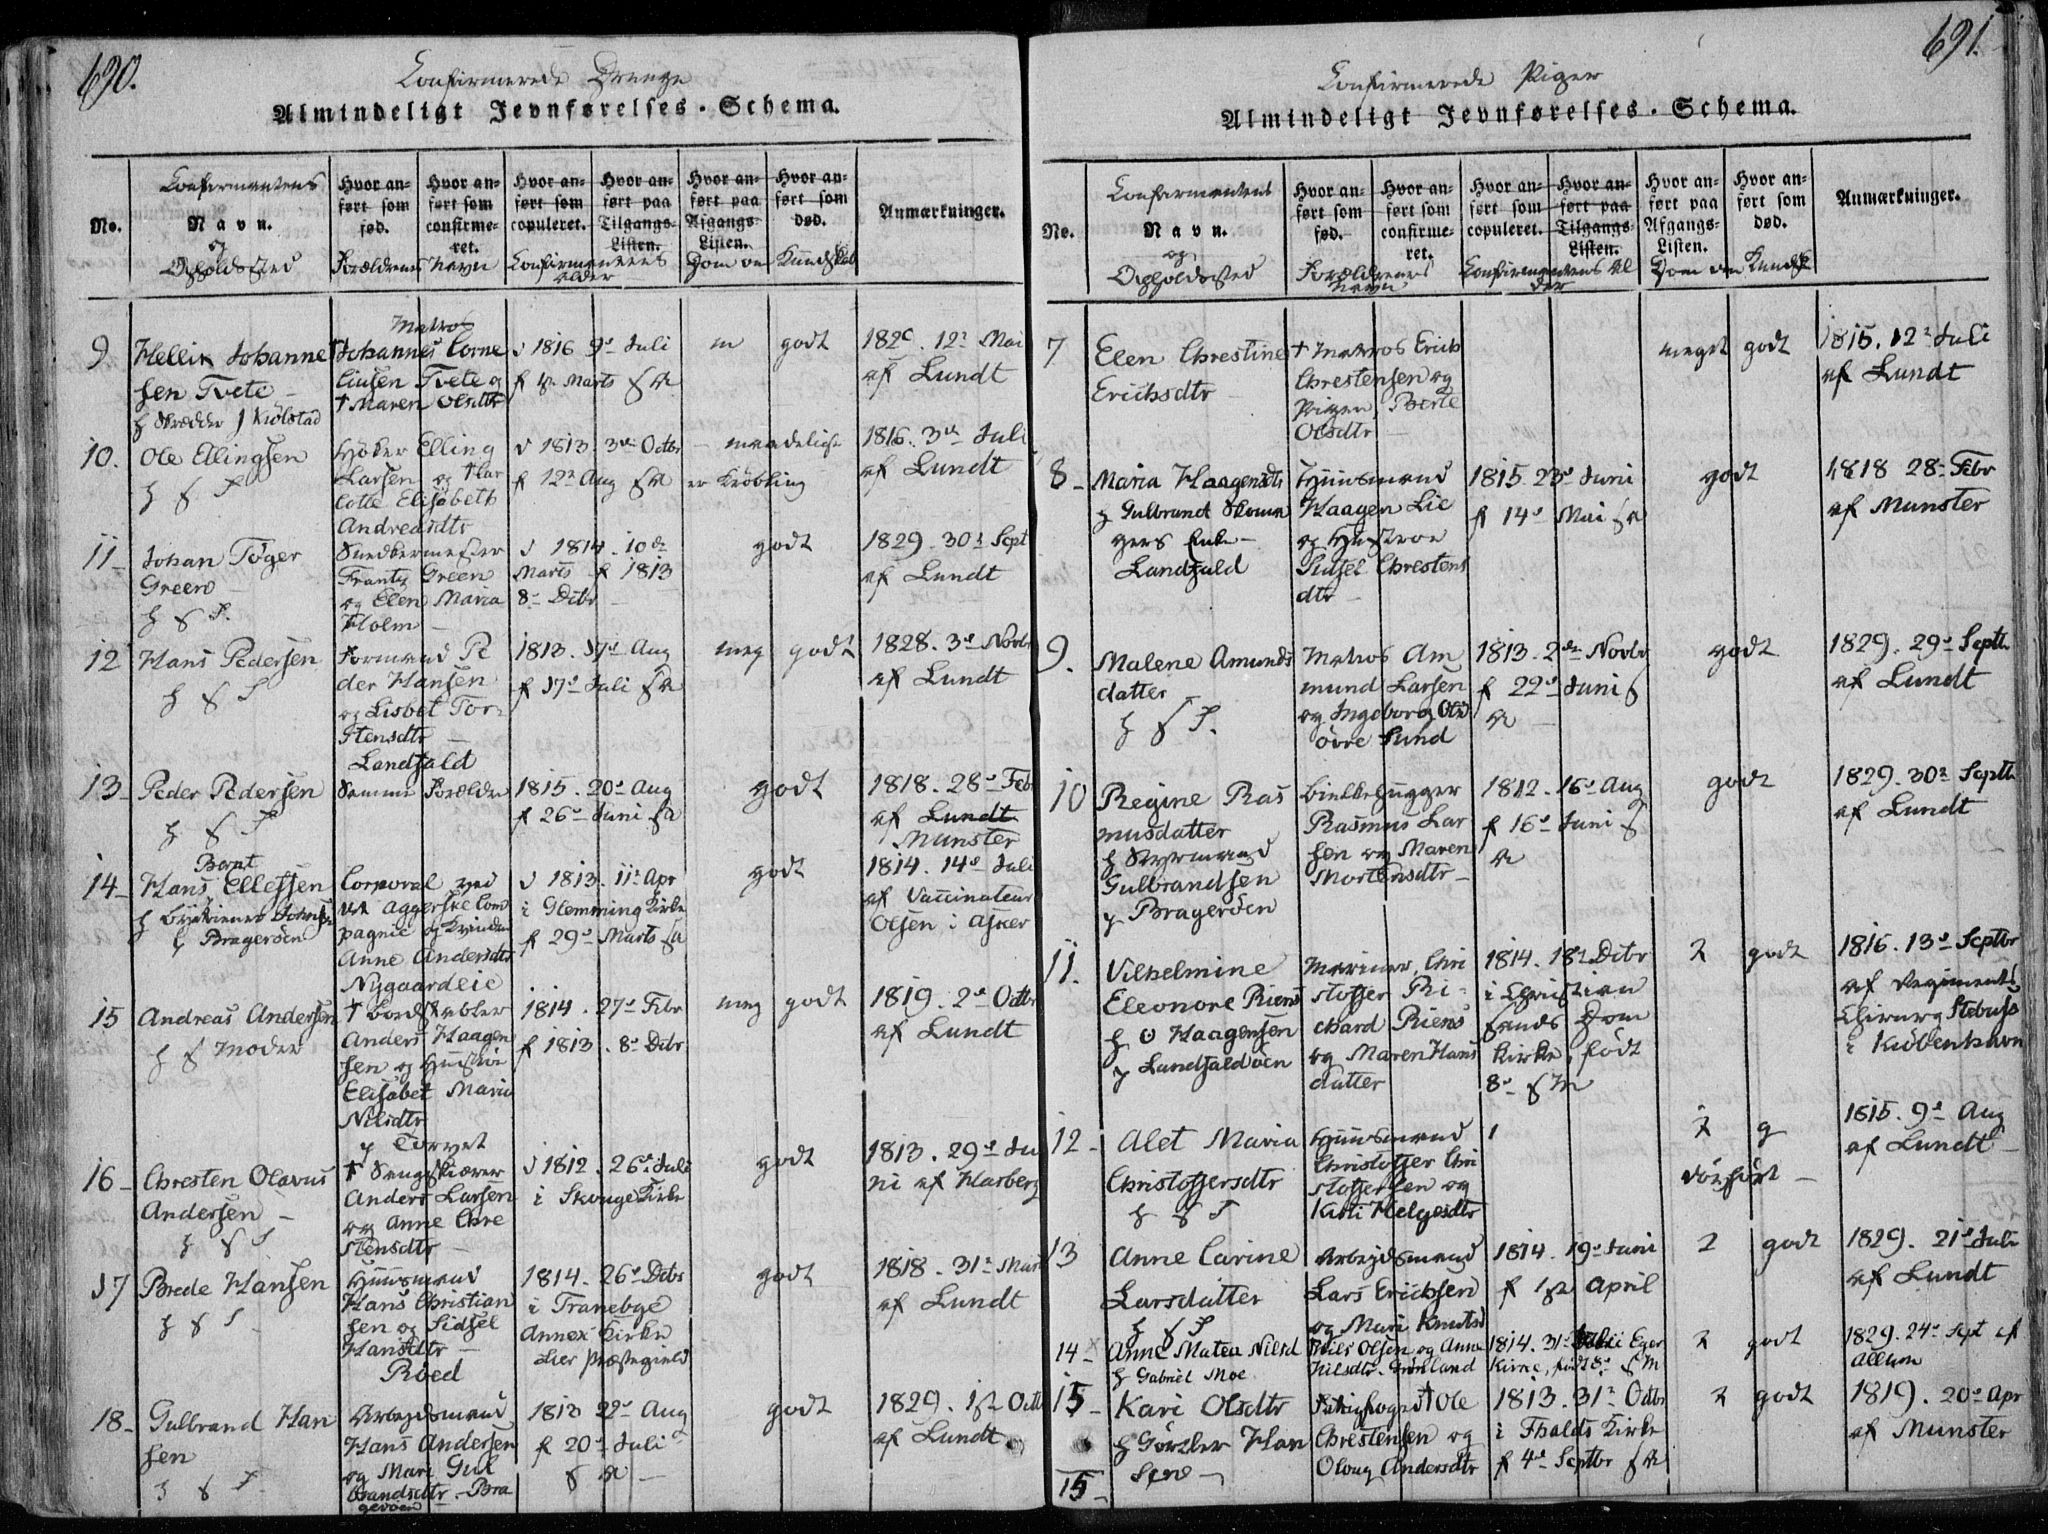 690.
Confirmerede Drenge
Almindeligt Jevnførelses-Schema.
No.
Confirmantens
Navn.
og
Opholdssted
Hvor anført som fød.
Forældrenes
Hvor anført som confirmeret.
Navn
Hvor anført som copuleret.
Confirmantens
Alder
Hvor anført paa Tilgangs-Listen.
Hvor anført paa Afgangs-Listen.
Dom om
Hvor anført som død.
Kundskab
Anmærkninger.
9
Hellik Johanne
sen Tvete
h Skrædder J Kiølstad
Matros
Johannes Corne
liusen Tvete og
† Maren Olsdtr
d 1816 9de Juli
f 4 Marts s A
m godt
1820. 12te Mai
af Lundt
10.
Ole Ellingsen
h s F
Høker Elling
Larsen og Char
lotte Elisabeth
Andreasdtr
d 1813. 3die Octbr
f 12te Aug s A
maadelig
er Krøbling
1816. 3die Juli
af Lundt
11
Johan Töger
Green
h s F.
Snedkermester
Frantz Green
og Elen Maria
Holm
d 1814. 10de
Marts f 1813
8de Decbr
godt
1829. 30te Sept
af Lundt
12
Hans Pedersen
h s F
Formand Pe
der Hansen
og Lisbet Tor
stensdtr
Landfald
1813. 17de Aug
f 17de Juli s A
meg godt
1828. 3die Novbr
af Lundt
13
Peder Pedersen
h s F
Samme Forældre
1815. 20de Aug
f 26de Juni s A
godt
1818. 28de Febr
af Lundt
Munster
14
Bernt
Hans Ellefsen
h Bragerøen
Corporal ved
Aggerske Com
pagnie og Kvinden
Anne Andersdtr
Nygaardeie
d 1813. 11te Apr
i Glemming Kirke
f 29de Marts s A
godt
1814. 14de Juli
af Vaccinateur
Olsen i Asker
15
Andreas Andersen
h s Moder
Anders Haagen
sen og Hustru
Elisabet Maria
Nilsdtr
p Torvet
1814. 27de Febr
f 1813. 8de Decbr
meg godt
1819. 2den Octbr
af Lundt
16
Chresten Olavus
Andersen
h s F
† Saugskiærer
Anders Larsen
og Anne Chre
stensdtr
d 1812. 26de Juli
i Skouge Kirke
godt
1813. 29de Ju
ni af Harberg
17
Brede Hansen
h s F
Huusmand
Hans Christian
sen og Sidsel
Hansdtr
Røed
1814. 26de Decbr
i Tranebye
Annex Kirke
Lier Præstegield
godt
1818. 31te
af Lundt
18
Gulbrand Han
sen
h s F
Arbeidsmand
Hans Andersen
og Mari Gul
brandsdtr. Bra
gerøen
1813 22de Aug
f 20de Juli
s A
godt
1829. 1ste Octb
af Lundt
691.
Confirmerede Piger
Almindeligt Jevnførelses-Schema.
No.
Confirmantens
Navn.
og
Opholdssted
Hvor anført som fød.
Forældrenes
Navn
Hvor anført som confirmeret.
Hvor anført som copuleret.
Confirmantens Al
der
Hvor anført paa Tilgangs-Listen.
Hvor anført paa Afgangs-Listen.
Dom om Kundsk
Hvor anført som død.
Anmærkninger.
7
Elen Chrestine
Erichsdtr
† Matros Erich
Chrestensen og
Pigen Berte
Olsdtr
meget godt
1815. 12te Juli
af Lundt
8
Maria Haagensdtr
h Gulbrandt
Enke
Landfald
Huusmand
Haagen Lie
og Hustroe
Sidsel Chrestens
dtr
1815. 23de Juni
f 14de Mai s A
godt
1818 28de Febr
af Munster
9.
Malene Amunds
datter
h s F.
Matros Am
mund Larsen
og Ingeborg Olsd
øvre Sund
1813. 2den Novbr
f 22de Juni s
A
godt
1829. 29de Septb
af Lundt
10
Regine Ras
musdatter
h Styrmand
Gulbrandsen
p Bragerøen
Bielkehugger
Rasmus Lar
sen og Maren
Mortensdtr
1812. 16de Aug
f 16de Juni s
A
godt
1829. 30te Septb
af Lundt
11.
Vilhelmine
Eleonore Riens
h O Haagensen
p Landfaldøen
Mariner Chri
stoffer Ri
chard Riens
og Maren Hans
datter
1814. 18de Decbr
i Christian
sands Dom
kirke, født
8de s M
2 godt
1816. 13de Septbr
af Regiments
Chirurg
i Kiøbenhavn
12
Alet Maria
Christoffersdtr
h s F
Huusmand
Christoffer Chri
stoffersen og
Kisti Helgesdtr
2 g
1815. 9de Aug
af Lundt
13
Anne Carine
Larsdatter
h s F
Arbejdsmand
Lars Erichsen
og Mari Knutsd
1814. 19de Juni
f 1ste April
2 godt
1829. 21de Juli
af Lundt
14
Anne Matea Nilsd
h Gabriel Moe
Nils Olsen og Anne
Nilsdtr. Grønland
1814. 31te Juli Eger
Kirke, født 8de s M
2 godt
1829. 24de Sept af
Allum
15
Kari Olsdtr
h Görtler Han
sens
Fattigfoged † Ole
Chrestensen og
Oloug Andersdtr
1813. 31te Octbr
i Thalds Kirke
f 4de Septbr s A
2 godt
1819. 20de Apr
af Munster
15